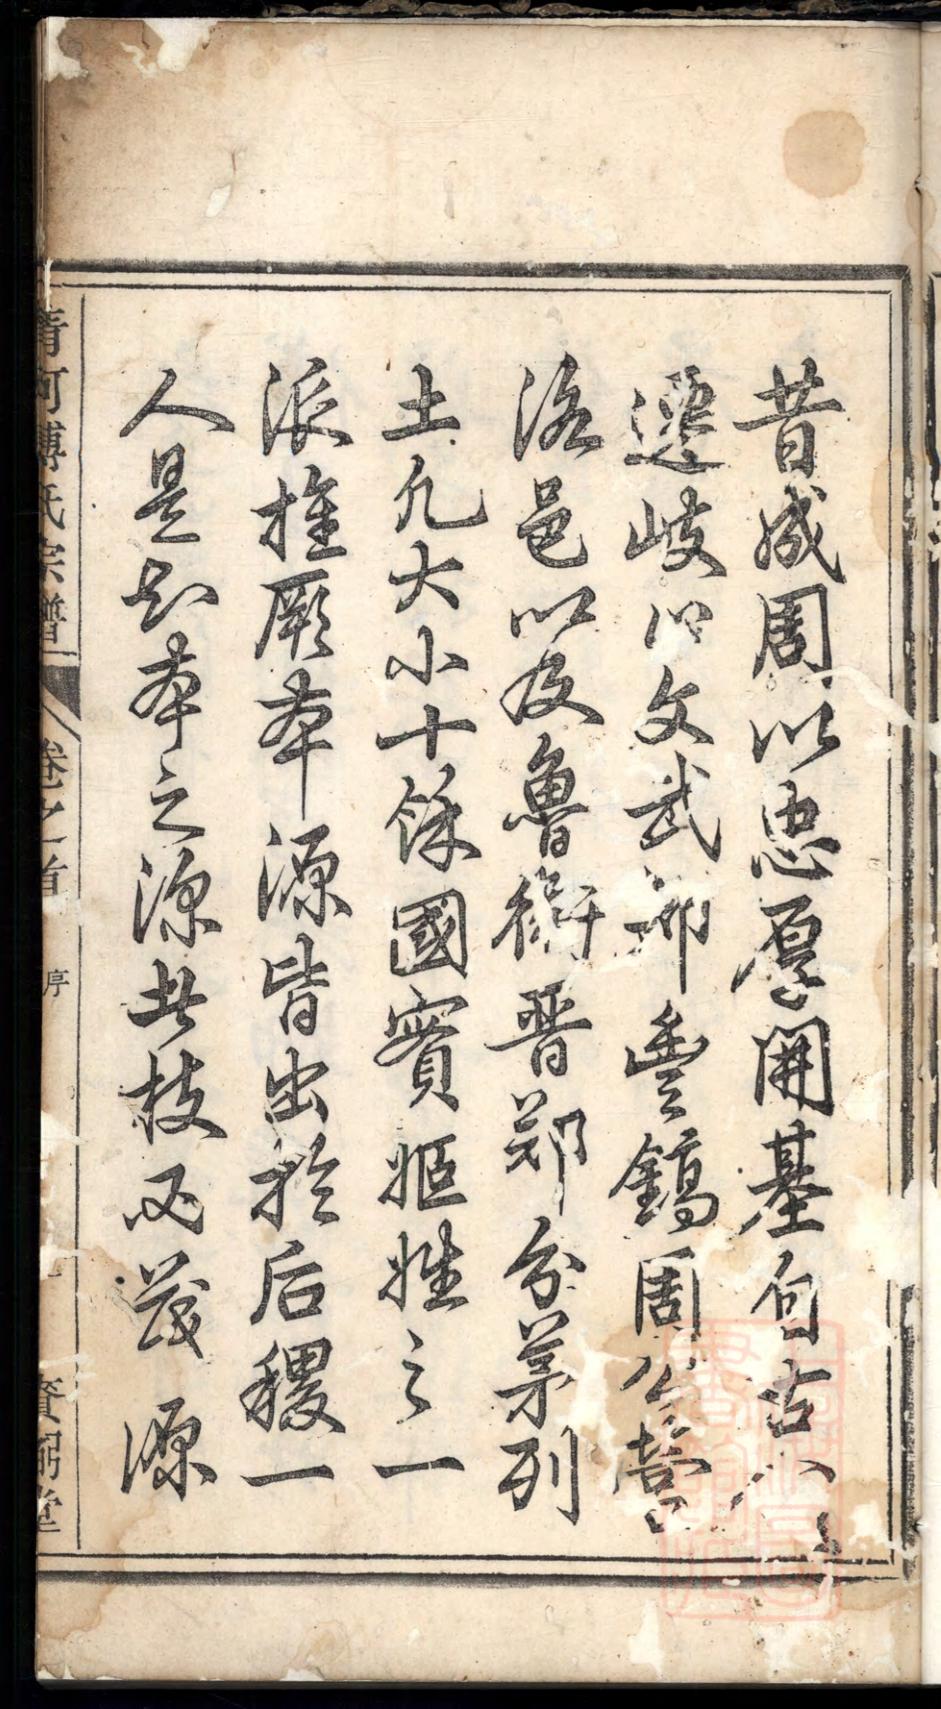 昔成周以忠厚開基自古公
遷岐以文武都豐鎬周公營
洛邑以及魯衛晉鄭分茅列
土凡大小十餘國實姬姓之一
派推厥本源皆出於后稷一
人是知本之源者枝必茂源
清河傅氏宗譜
卷之首
序
一
賚弼堂